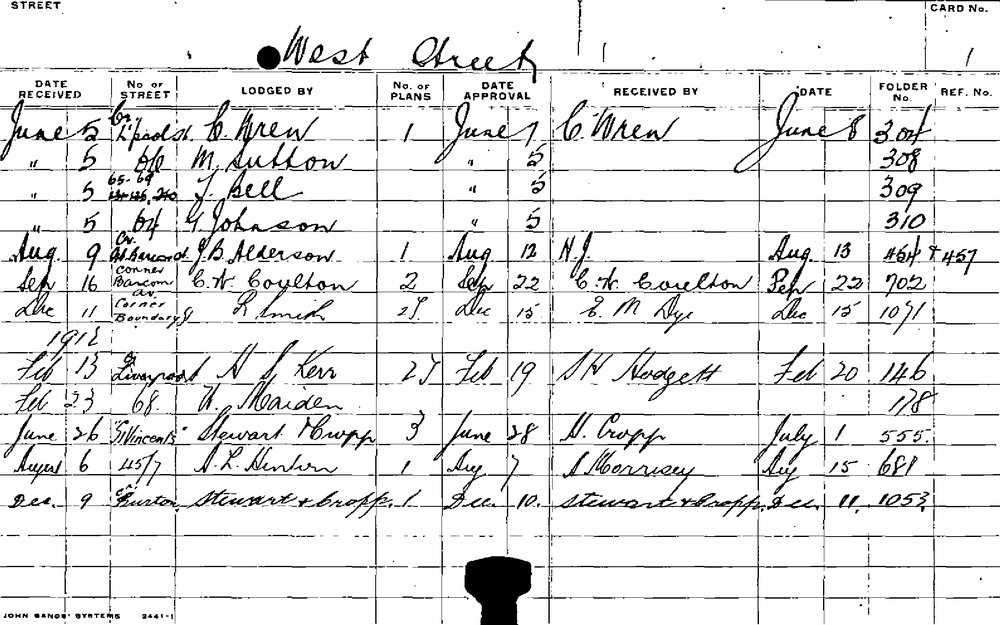 STREET CARD No.
West Street 1
DATE RECEIVED No OF STREET LODGED BY No. OF PLANS DATE APPROVAL RECEIVED BY DATE FOLDER No. REF. No.
June 5 Cr. L'pool st. C. Wren 1 June 7 C. Wren June 8 304
" 5 66 M. Sutton " 5 308
" 5 65-69 J. Bell " 5 309
" 5 64 G. Johnson " 5 310
Aug. 9 Cr. J. B. Alderson 1 Aug 12 H. J. Aug 13 454 + 457
Sep 16 corner Barcom av. C. W. Coulton 2 Sep 22 C. W. Coulton Sep 22 702
Dec 11 Corner Boundary L Smith 2T Dec 15 E. M Dye Dec 15 1071
1912
Feb 13 Cr Liverpool H S. Kerr 2T Feb 19 S H Hodgett Feb 20 146
Feb 23 68. W. Maiden 178
June 26 "St Vincents" Stewart & Cropp 3 June 28 H. Cropp July 1 555.
August 6 45/7 A. L. Hinton 1 Aug 7 A Morrisey Aug 15 681
Dec. 9 Cr Burton Stewart & Cropp. 1 Dec. 10. Stewart & Cropp. Dec. 11. 1053.
JOHN SANDS' SYSTEMS 2441-1